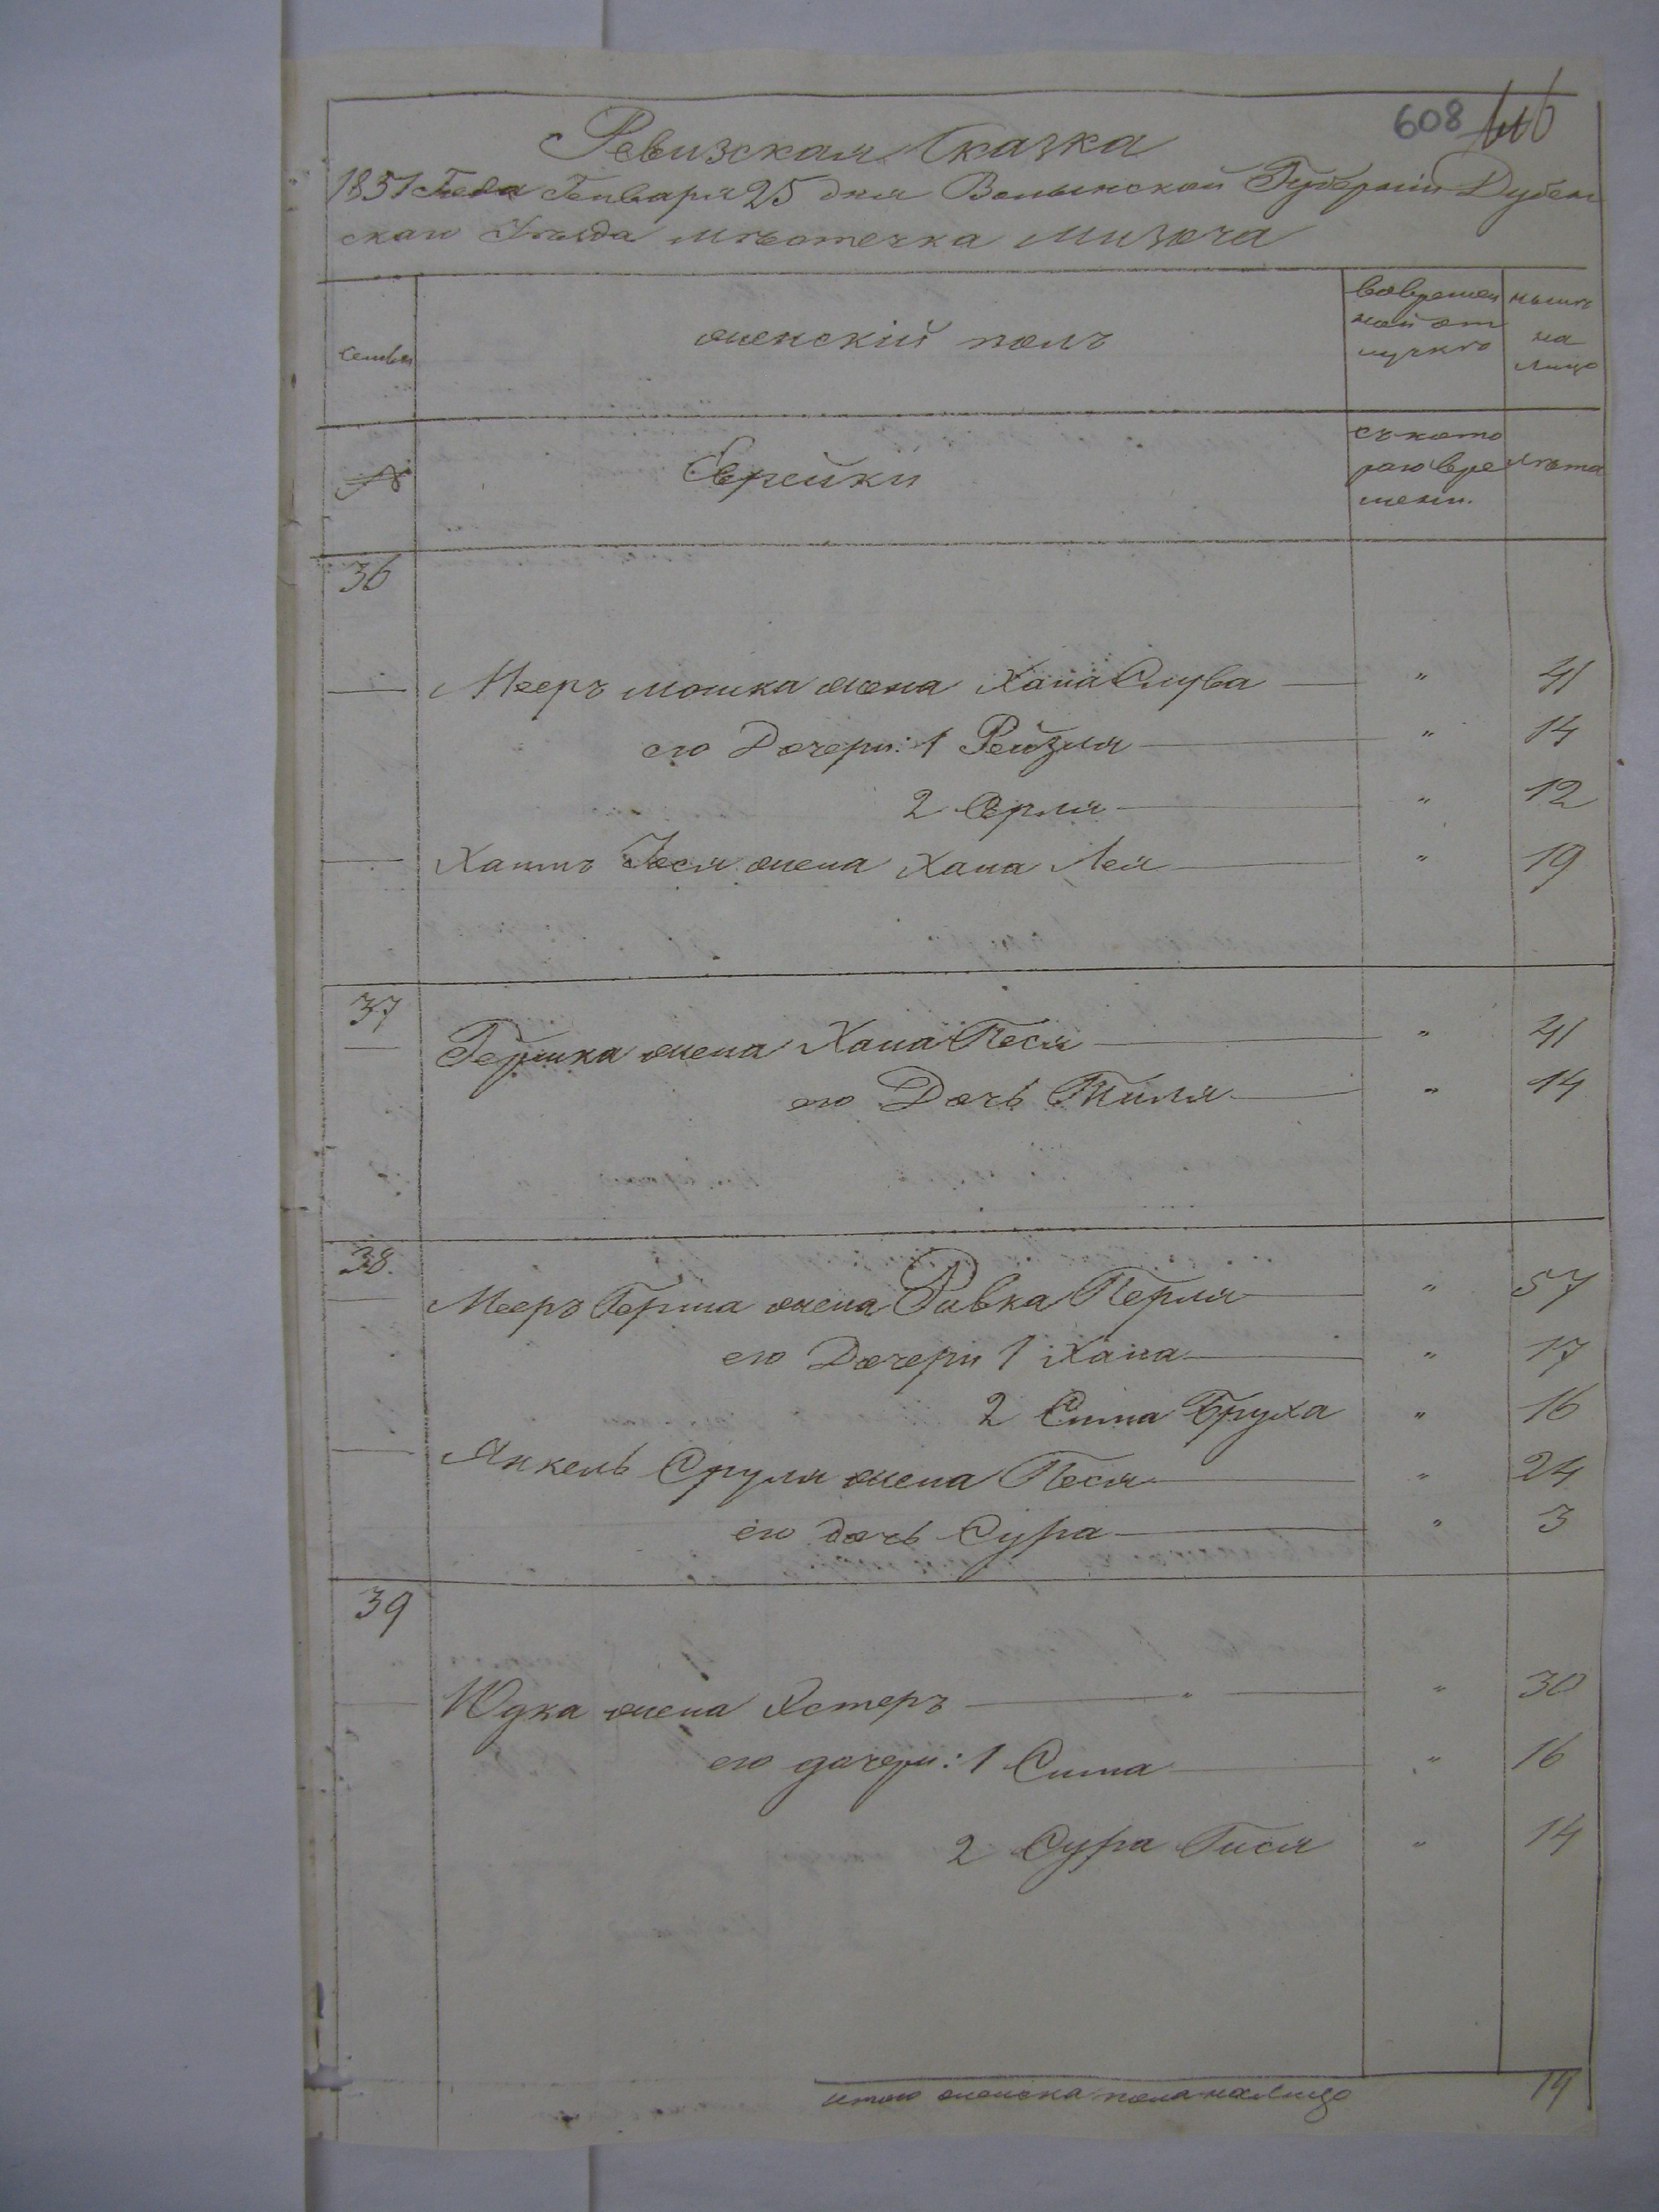 608
Ревизская Сказка
1851 Года Генваря 25 дня Волынской Губернiи Дубен
скаго Уезда мѣстечка Мизоча
семьи
женскiй полъ
вовремен
ной от
лучкѣ
нынѣ
на
лицо
№
Еврейки
съ кото
раго вре
мени.
лѣта
36
Мееръ Мошка жена Хана Слува " 41
его Дочери: 1 Рейзля " 14
2 Перля " 12
Хаимъ Йося жена Хана Лея " 19
37
Гершка жена Хана Песя " 41
его Дочь Тиля " 14
38.
Мееръ Герша жена Ривка Перля " 57
его Дочери 1 Хана " 17
2 Сима Бруха " 16
Янкель Сруля жена Песя " 24
его дочь Сура " 3
39
Юдка жена Хстеръ " " 30
его дочери: 1 Сима " 16
2 Сура Гися " 14
итого женска пола налицо 14